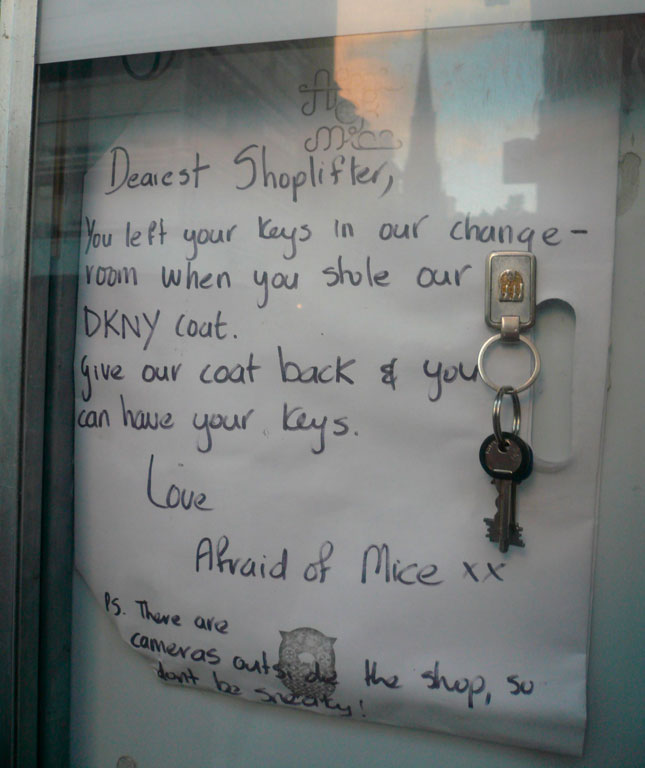 Afraid
of
Mice
Dearest Shoplifter,
You left your keys in our change-
room when you stole our
DKNY coat.
Give our coat back & you
can have your keys.
Love
Afraid of Mice xx
Ps. There are
cameras outside the shop, so
dont be sneaky!